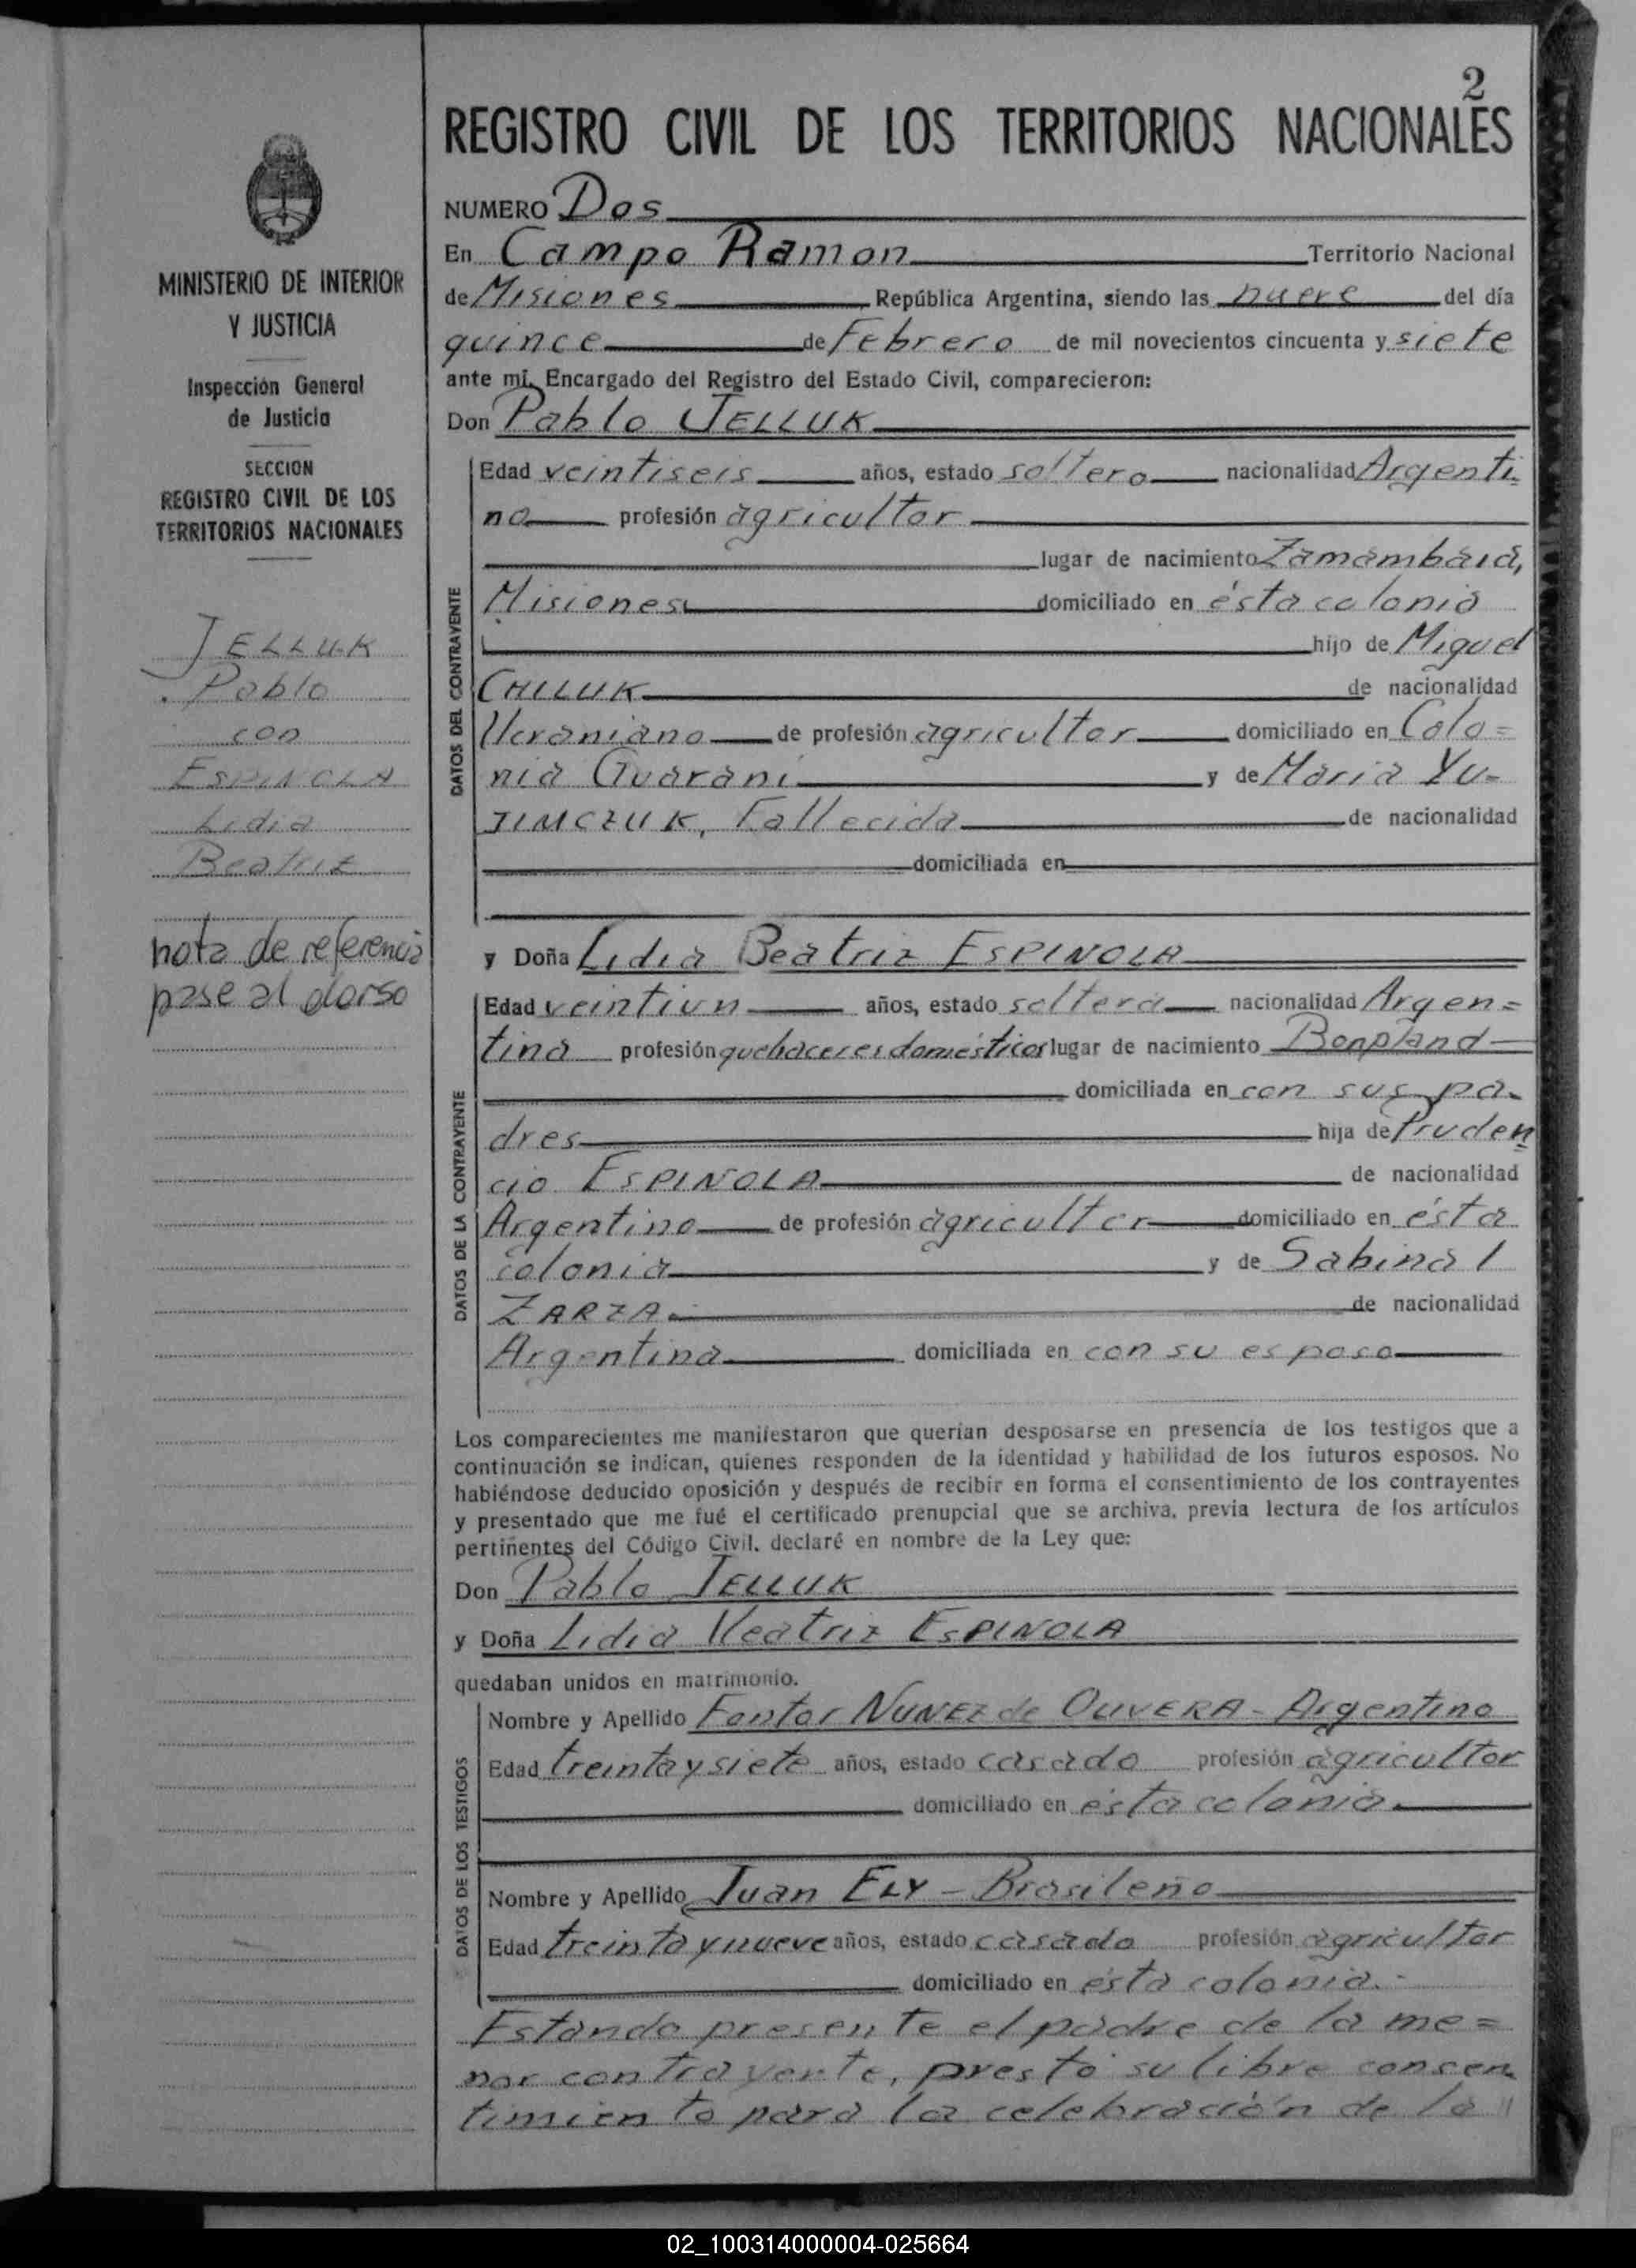 2
REGISTRO CIVIL DE LOS TERRITORIOS NACIONALES
MINISTERIO DE INTERIOR
Y JUSTICIA
Inspección General
de Justicia
SECCION
REGISTRO CIVIL DE LOS
TERRITORIOS NACIONALES
JELLUK
Pablo
con
ESPINOLA
Lidia
Beatriz
nota de referencia
pase al dorso
NUMERO Dos
En Campo Ramon Territorio Nacional
de Misiones República Argentina, siendo las nueve del día
quince de Febrero de mil novecientos cincuenta y siete
ante mí, Encargado del Registro del Estado Civil, comparecieron:
Don Pablo JELLUK
DATOS DEL CONTRAYENTE
Edad veintiseis años, estado soltero nacionalidad Argenti-
no profesión agricultor
lugar de nacimiento Zamambaia,
Misiones domiciliado en ésta colonia
hijo de Miguel
CHILUK de nacionalidad
Ucraniano de profesión agricultor domiciliado en Colo=
nia Guarani y de Maria YU-
JIMCZUK, Fallecida de nacionalidad
domiciliada en
y Doña Lidia Beatriz ESPINOLA
DATOS DE LA CONTRAYENTE
Edad veintiun años, estado soltera nacionalidad Argen=
tina profesión quehaceres domésticos lugar de nacimiento Bonpland
domiciliada en con sus pa-
dres hija de Pruden=
cio ESPINOLA de nacionalidad
Argentino de profesión agricultor domiciliado en ésta
colonia y de Sabina
ZARZA de nacionalidad
Argentina domiciliada en con su esposo
Los comparecientes me manifestaron que querían desposarse en presencia de los testigos que a
continuación se indican, quienes responden de la identidad y habilidad de los futuros esposos. No
habiéndose deducido oposición y después de recibir en forma el consentimiento de los contrayentes
y presentado que me fué el certificado prenupcial que se archiva, previa lectura de los artículos
pertinentes del Código Civil, declaré en nombre de la Ley que:
Don Pablo JELLUK
y Doña Lidia Veatriz ESPINOLA
quedaban unidos en matrimonio.
DATOS DE LOS TESTIGOS
Nombre y Apellido NUNEZ de OLIVERA - Argentino
Edad treinta y siete años, estado casado profesión agricultor
domiciliado en ésta colonia
Nombre y Apellido Juan ELY - Brasileño
Edad treinta y nueve años, estado casado profesión agricultor
domiciliado en ésta colonia.-
Estando presente el padre de la me=
nor contrayente, prestó su libre consen
timiento para la celebración de la "
02_100314000004-025664